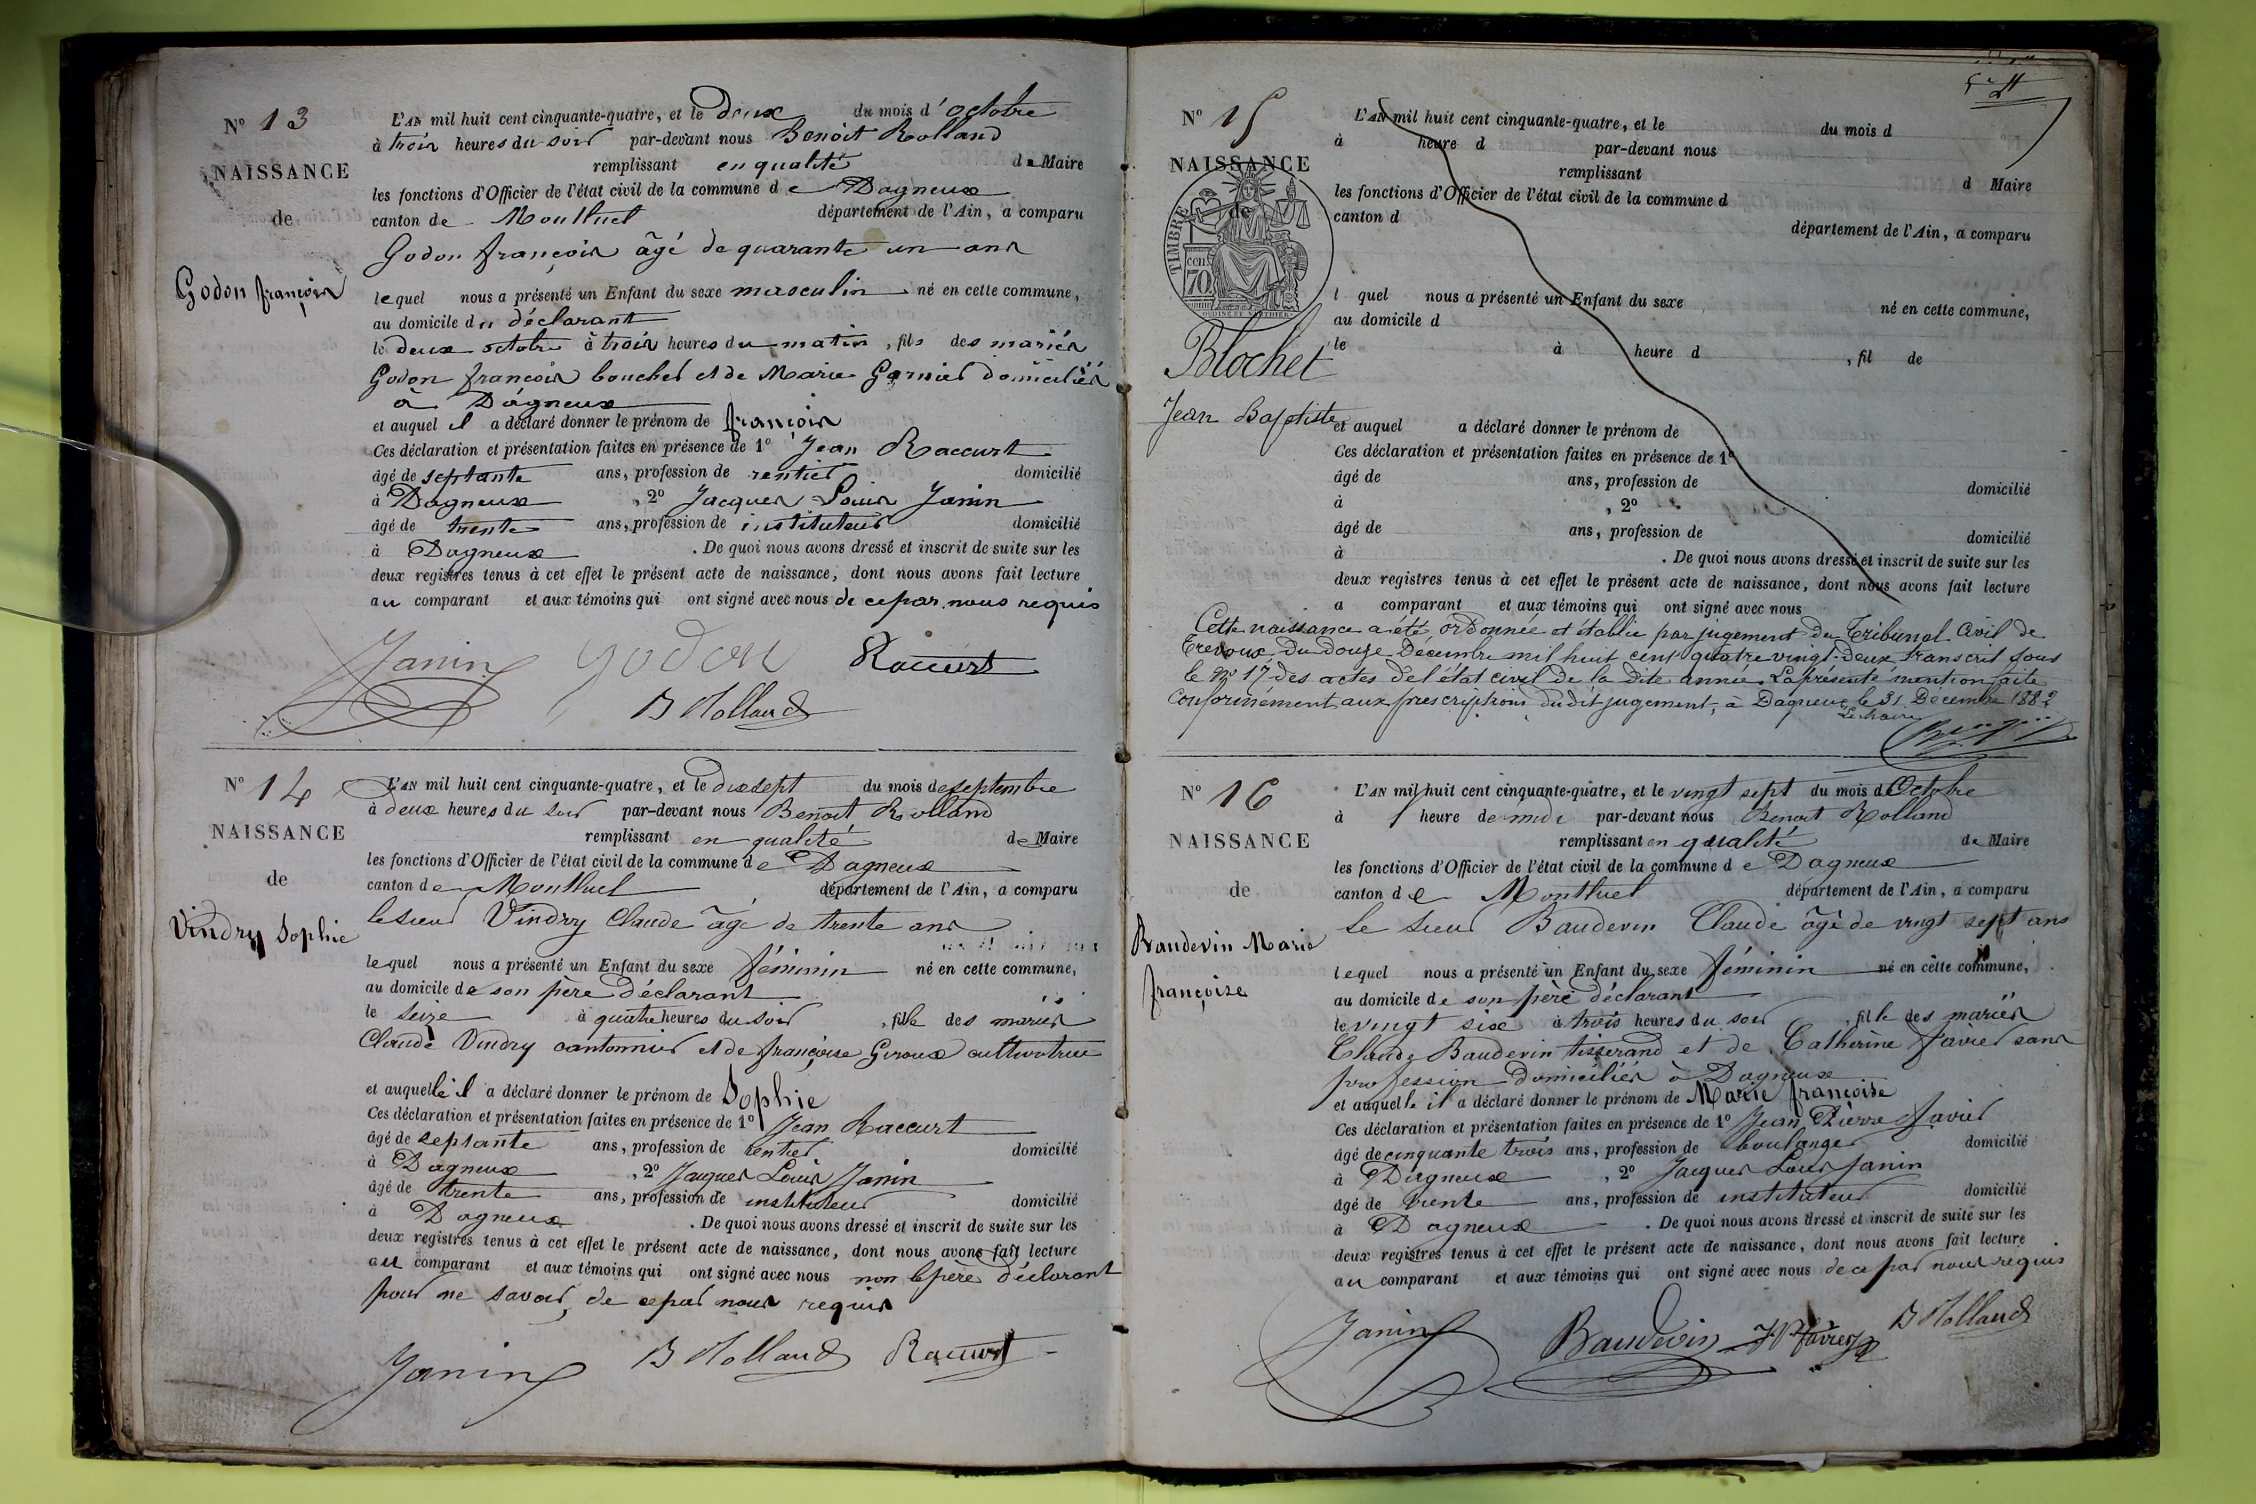 N° 13
NAISSANCE
de
Godon françois
L'AN mil huit cent cinquante-quatre, et le deux du mois d'octobre
à trois heures du soir par-devant nous Benoit Rolland
remplissant en qualité de Maire
les fonctions d'Officier de l'état civil de la commune de Dagneux
canton de Montluel département de l'Ain, a comparu
Godon françois âgé de quarante un ans
lequel nous a présenté un Enfant du sexe masculin né en cette commune,
au domicile du déclarant
le deux octobre à trois heures du matin, fils des mariés
Godon françois boucher et de Marie Garnier domiciliés
à Dagneux
et auquel il a déclaré donner le prénom de françois
Ces déclaration et présentation faites en présence de 1° Jean Raccurt
âgé de septante ans, profession de rentier domicilié
à Dagneux, 2° Jacques Louis Janin
âgé de trente ans, profession de instituteur domicilié
à Dagneux. De quoi nous avons dressé et inscrit de suite sur les
deux registres tenus à cet effet le présent acte de naissance, dont nous avons fait lecture
au comparant et aux témoins qui ont signé avec nous de ce par nous requis
Janin Godon Raccurt
B Rolland
N° 14
NAISSANCE
de
Vindry Sophie
L'AN mil huit cent cinquante-quatre, et le dix sept du mois de septembre
à deux heures du soir par-devant nous Benoit Rolland
remplissant en qualité de Maire
les fonctions d'Officier de l'état civil de la commune de Dagneux
canton de Montluel département de l'Ain, a comparu
le sieur Vindry Claude âgé de trente ans
lequel nous a présenté un Enfant du sexe féminin né en cette commune,
au domicile de son père déclarant
le seize à quatre heures du soir, fille des mariés
Claude Vindry cantonnier et de françoise Giroux cultivatrice
et auquelle il a déclaré donner le prénom de Sophie
Ces déclaration et présentation faites en présence de 1° Jean Raccurt
âgé de septante ans, profession de rentier domicilié
à Dagneux, 2° Jacques Louis Janin
âgé de trente ans, profession de instituteur domicilié
à Dagneux. De quoi nous avons dressé et inscrit de suite sur les
deux registres tenus à cet effet le présent acte de naissance, dont nous avons fait lecture
au comparant et aux témoins qui ont signé avec nous non le père déclarant
pour ne savoir, de ce par nous requis
Janin B Rolland Raccurt
N° 15
NAISSANCE
de
TIMBRE
CEN
70
Blochet
Jean Baptiste
L'AN mil huit cent cinquante-quatre, et le du mois d
à heure d par-devant nous
remplissant d Maire
les fonctions d'Officier de l'état civil de la commune d
canton d département de l'Ain, a comparu
l quel nous a présenté un Enfant du sexe né en cette commune,
au domicile d
le à heure d, fil de
et auquel a déclaré donner le prénom de
Ces déclaration et présentation faites en présence de 1°
âgé de ans, profession de domicilié
à, 2°
âgé de ans, profession de domicilié
à. De quoi nous avons dressé et inscrit de suite sur les
deux registres tenus à cet effet le présent acte de naissance, dont nous avons fait lecture
a comparant et aux témoins qui ont signé avec nous
Cette naissance a été ordonnée et établie par jugement du Tribunal Civil de
Trévoux du douze Décembre mil huit cent quatre vingt-deux transcrit sous
le N° 17 des actes de l'état civil de la dite année. La présente mention faite
conformément aux prescriptions du dit jugement, à Dagneux le 31 Décembre 1882
Le Maire
N° 16
NAISSANCE
de
Baudevin Marie
françoise
L'AN mil huit cent cinquante-quatre, et le vingt sept du mois d'Octobre
à 1 heure de midi par-devant nous Benoit Rolland
remplissant en qualité de Maire
les fonctions d'Officier de l'état civil de la commune de Dagneux
canton de Montluel département de l'Ain, a comparu
le sieur Baudevin Claude âgé de vingt sept ans
lequel nous a présenté un Enfant du sexe féminin né en cette commune,
au domicile de son père déclarant
le vingt six à trois heures du soir, fille des mariés
Claude Baudevin tisserand et de Catherine favier sans
profession domiciliés à Dagneux
et auquelle il a déclaré donner le prénom de Marie françoise
Ces déclaration et présentation faites en présence de 1° Jean Pierre favier
âgé de cinquante trois ans, profession de boulanger domicilié
à Dagneux, 2° Jacques Louis Janin
âgé de trente ans, profession de instituteur domicilié
à Dagneux. De quoi nous avons dressé et inscrit de suite sur les
deux registres tenus à cet effet le présent acte de naissance, dont nous avons fait lecture
au comparant et aux témoins qui ont signé avec nous de ce par nous requis
Janin Baudevin J P favier B Rolland